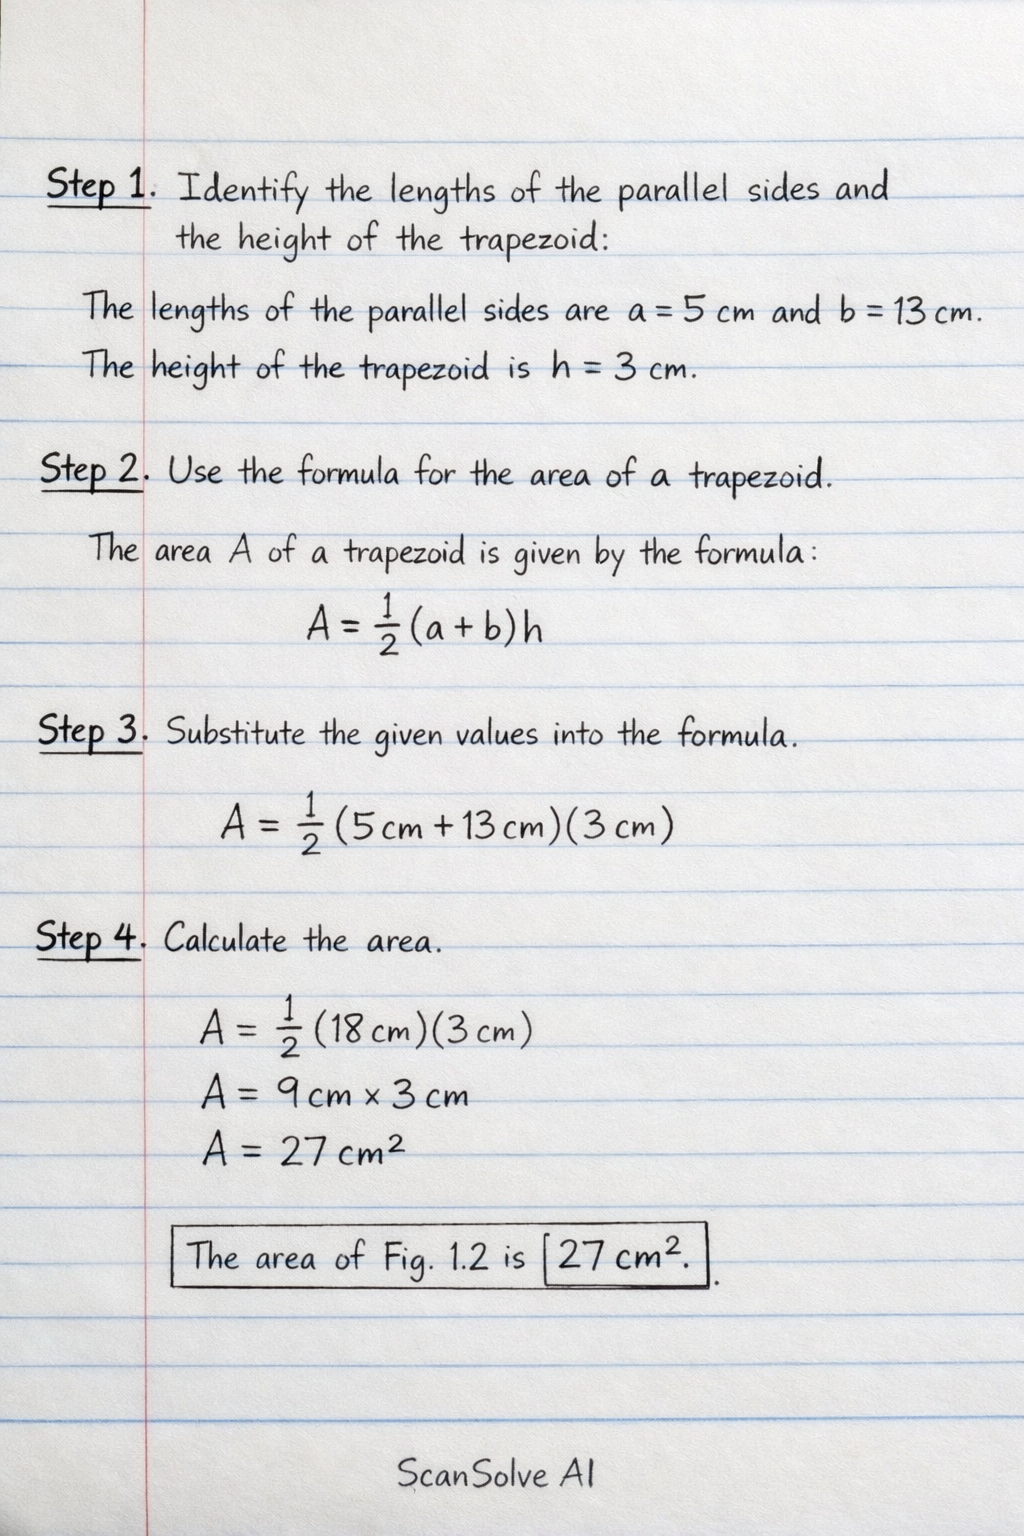 Step 1. Identify the lengths of the parallel sides and
the height of the trapezoid:
The lengths of the parallel sides are a = 5 cm and b = 13 cm.
The height of the trapezoid is h = 3 cm.
Step 2. Use the formula for the area of a trapezoid.
The area A of a trapezoid is given by the formula:
A = 1/2 (a + b)h
Step 3. Substitute the given values into the formula.
A = 1/2 (5 cm + 13 cm)(3 cm)
Step 4. Calculate the area.
A = 1/2 (18 cm)(3 cm)
A = 9 cm × 3 cm
A = 27 cm²
The area of Fig. 1.2 is 27 cm²..
ScanSolve AI